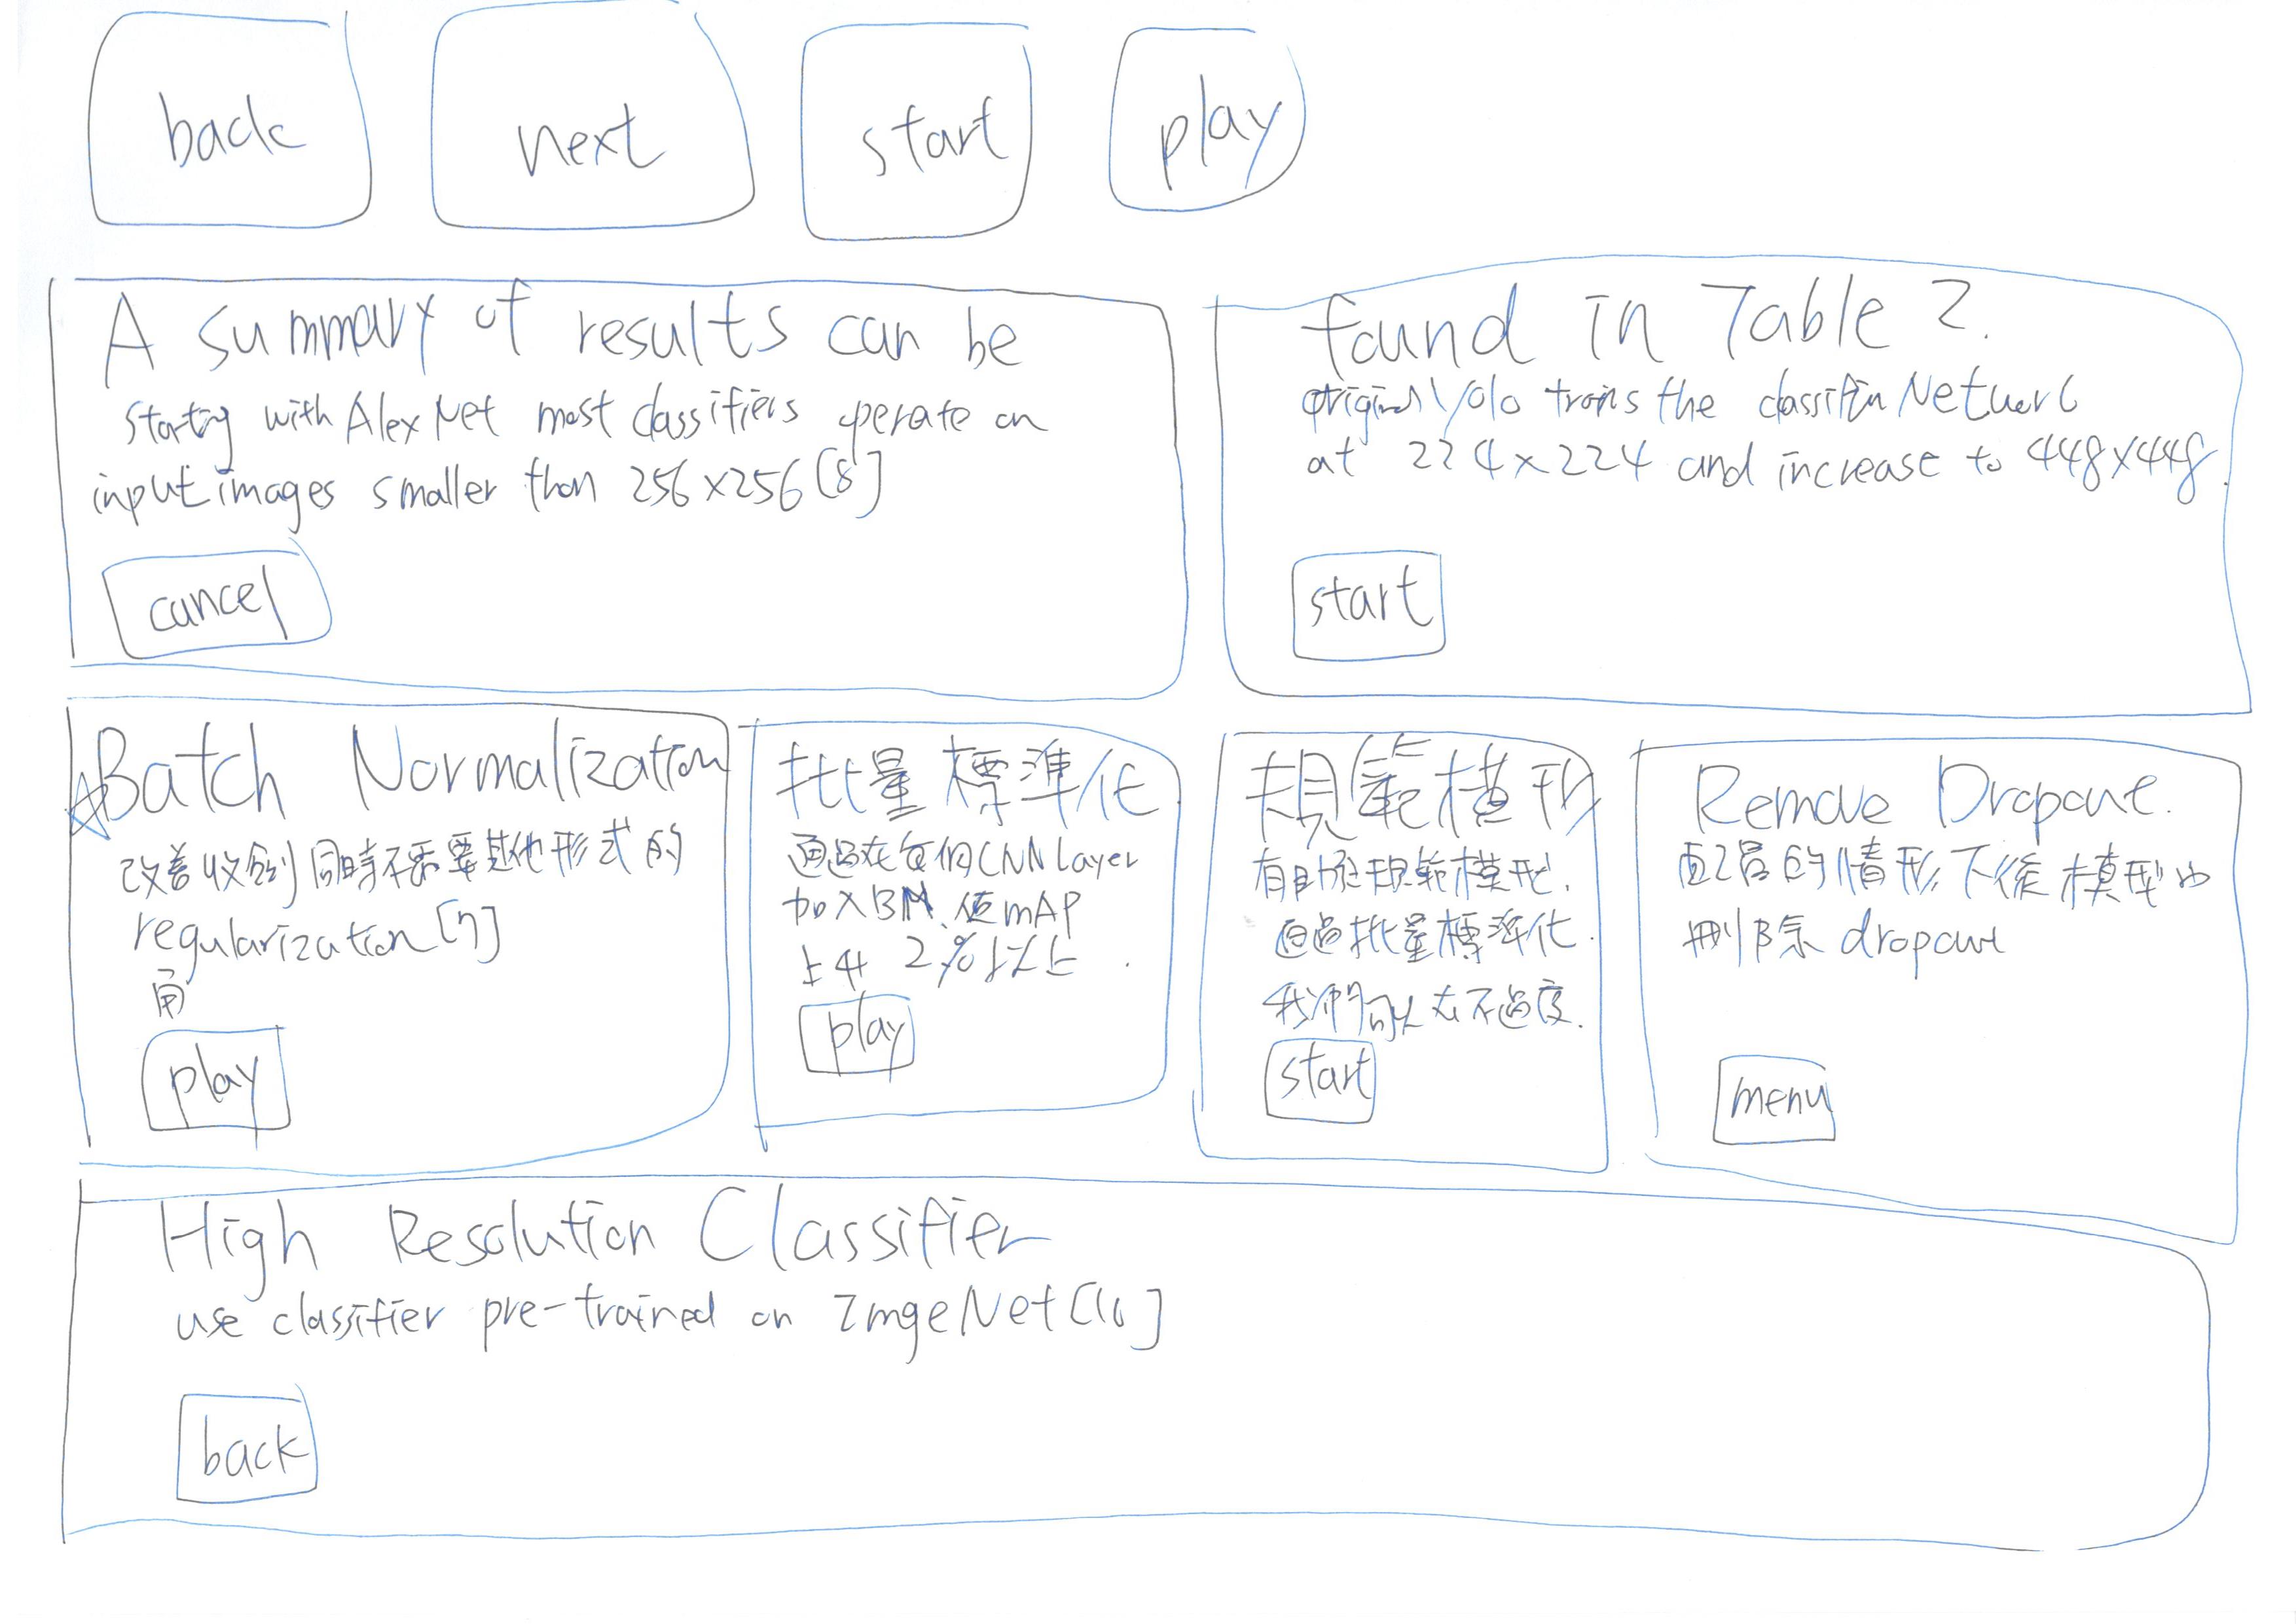 back
next
start
play
A summary of results can be
starting with AlexNet most classifiers operate on
input images smaller than 256x256 [8]
cancel
found in Table 2.
original Yolo trains the
at 224x224 and increase to 448x448.
start
Batch Normalization
改善收斂同時不需要其他形式的
regularization [7]
play
批量標準化
通過在每個CNN Layer
加入BN, 使mAP
上升 2%以上.
play
規範模形
有助於規範模型.
通過批量標準化.
我們可以在不過度.
start
Remove Dropout.
的情形下從模型中
刪除 dropout
menu
High Resolution Classifier
use classifier pre-trained on ImgeNet [16]
back